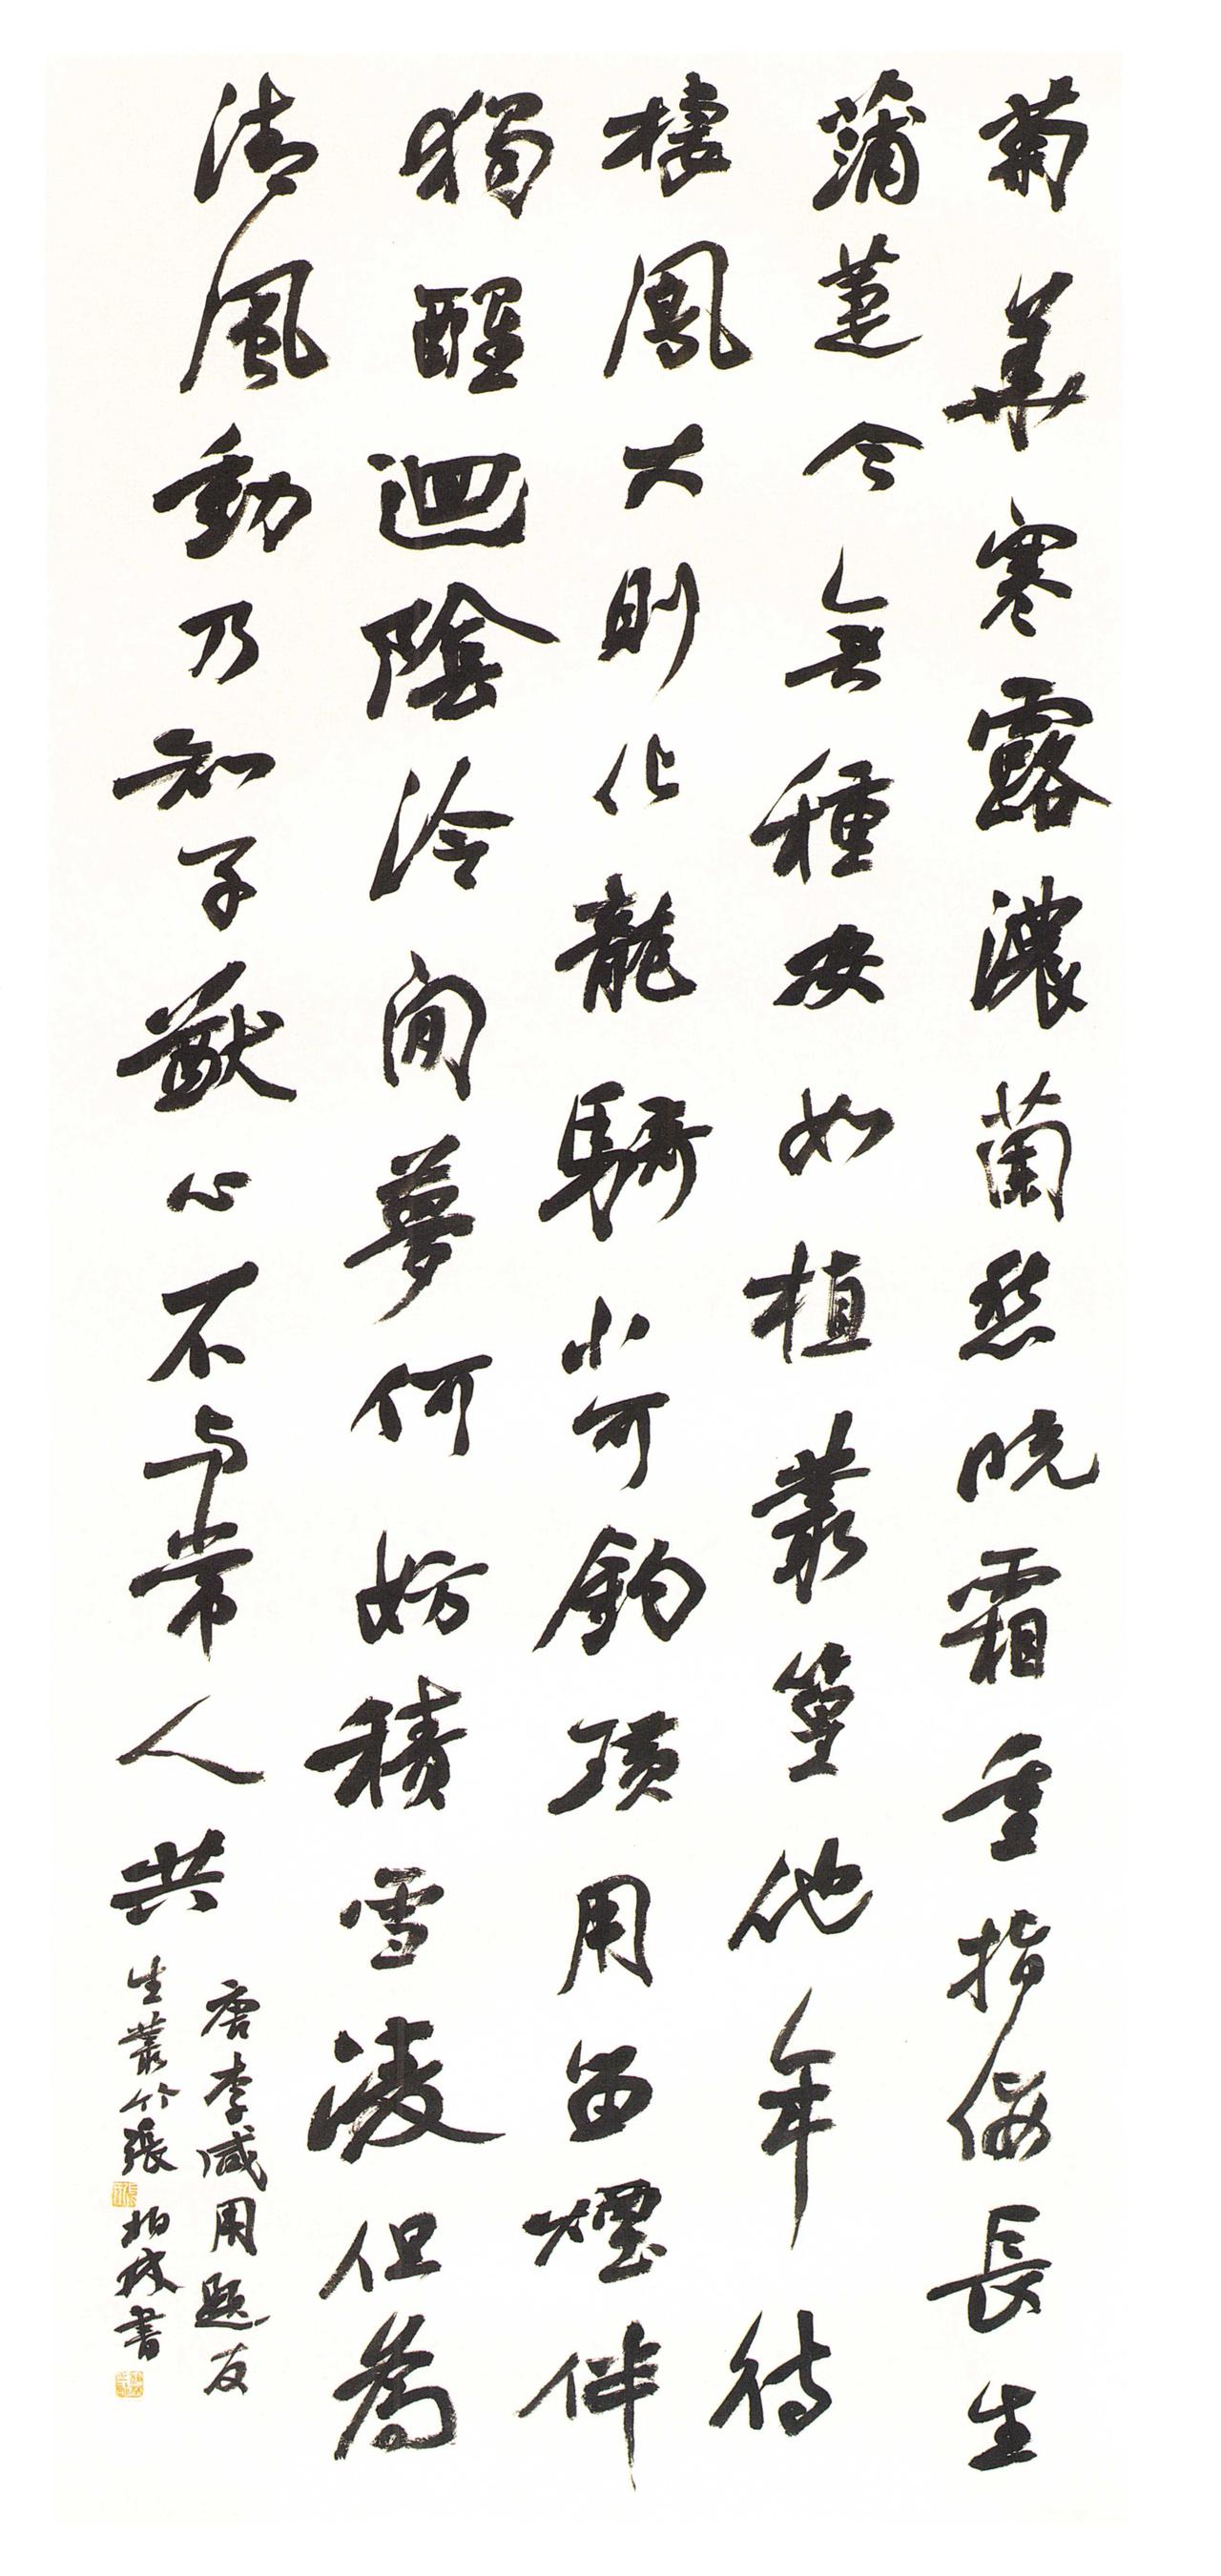 菊華寒露濃蘭愁晓霜重指佞長生
蒲萐今無種安如植叢篁他年待
棲鳳大則化龍騎小可釣璜用留煙伴
獨醒迴陰冷閒夢何妨積雪凌但為
清風動乃知子猷心不与常人共
唐李咸用題友
生叢竹張柏書